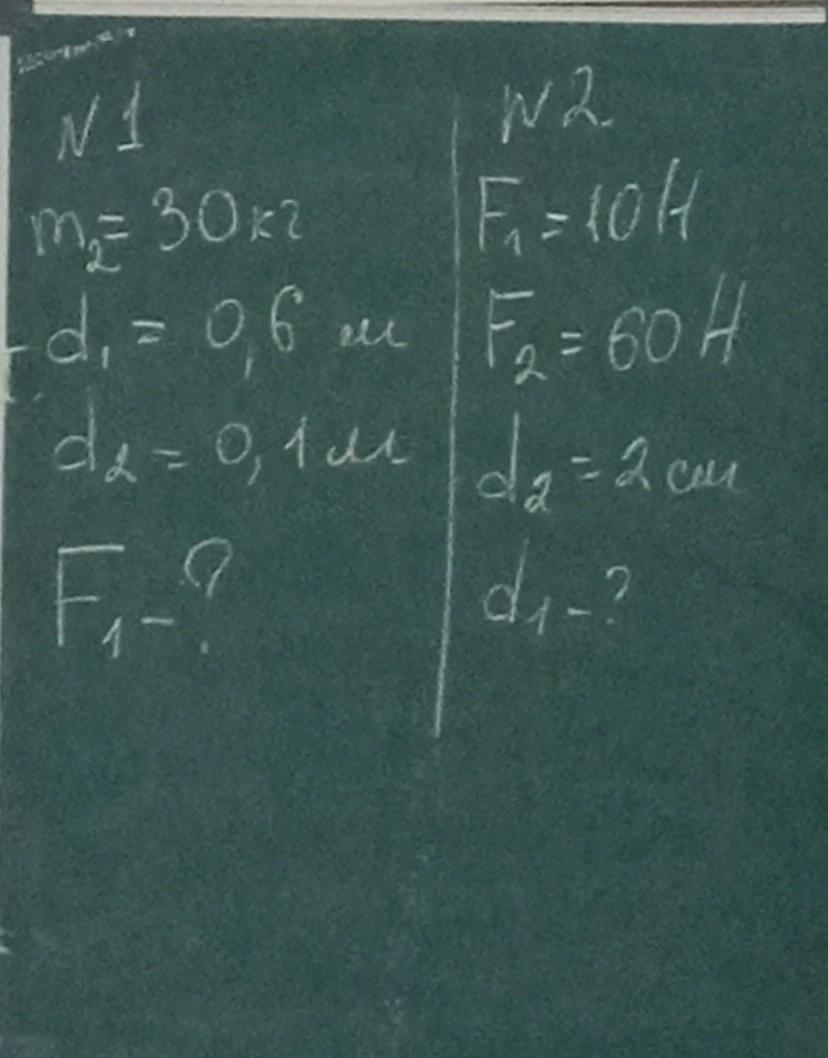 N1
m₂=30кг
d₁ = 0,6 м
d₂ = 0,1 м
F₁ - ?
N2
F₁ = 10 Н
F₂ = 60 Н
d₂ = 2 см
d₁ - ?